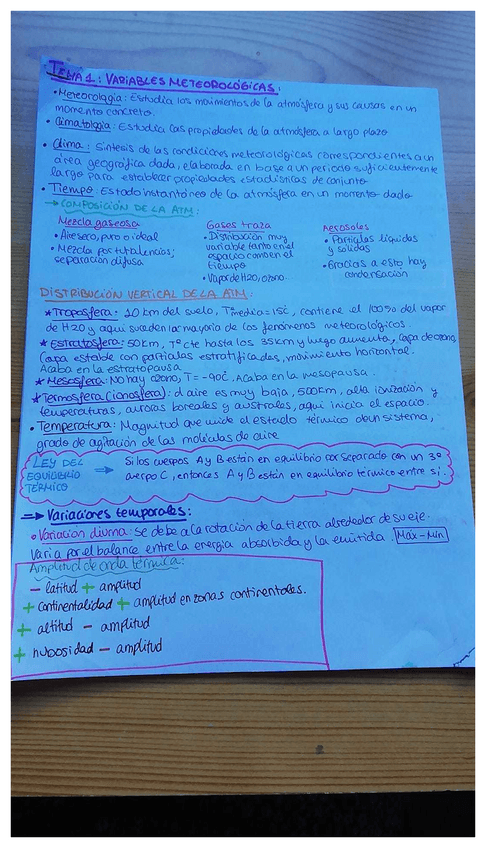 TEMA 1: VARIABLES METEOROLÓGICAS:
• Meteorología: Estudia los movimientos de la atmósfera y sus causas en un
momento concreto.
• Climatología: Estudia las propidades de la atmósfera a largo plazo
• Clima: Síntesis de las condiciones meteorológicas correspondientes a un
área geográfica dada, elaborada en base a un periodo suficientemente
largo para establecer propiedades estadísticas de conjunto
• Tiempo: Estado instantáneo de la atmósfera en un momento dado
→ COMPOSICIÓN DE LA ATM:
Mezcla gaseosa
• Aire seco, puro o ideal
• Mezcla por turbulencias;
separación difusa
Gases traza
• Distribución muy
variable tanto en el
espacio como en el
tiempo
• Vapor de H2O, ozono.
Aerosoles
• Partículas líquidas
y sólidas
• Gracias a esto hay
condensación
DISTRIBUCIÓN VERTICAL DE LA ATM:
★ Troposfera: 10 km del suelo, Tª media: 15ºC, contiene el 100% del vapor
de H2O y aquí suceden la mayoría de los fenómenos meteorológicos.
★ Estratosfera: 50km, Tª cte hasta los 35km y luego aumenta, capa de ozono,
Capa estable con partículas estratificadas, movimiento horizontal.
Acaba en la estratopausa
★ Mesosfera: No hay ozono, T = -90ºC. Acaba en la mesopausa.
★ Termosfera (ionosfera): d aire es muy baja, 500km, alta ionización y
temperaturas, auroras boreales y australes, aquí inicia el espacio.
• Temperatura: Magnitud que mide el estado térmico de un sistema,
grado de agitación de las moléculas de aire
LEY DEL
EQUILIBRIO
TÉRMICO
⇒ Si los cuerpos A y B están en equilibrio por separado con un 3º
cuerpo C, entonces A y B están en equilibrio térmico entre sí.
⇒ Variaciones temporales:
• Variación diurna: se debe a la rotación de la tierra alrededor de su eje.
Varia por el balance entre la energía absorbida y la emitida. Máx - Mín
Amplitud de onda térmica:
- latitud + amplitud
+ continentalidad + amplitud en zonas continentales.
+ altitud - amplitud
+ nubosidad - amplitud